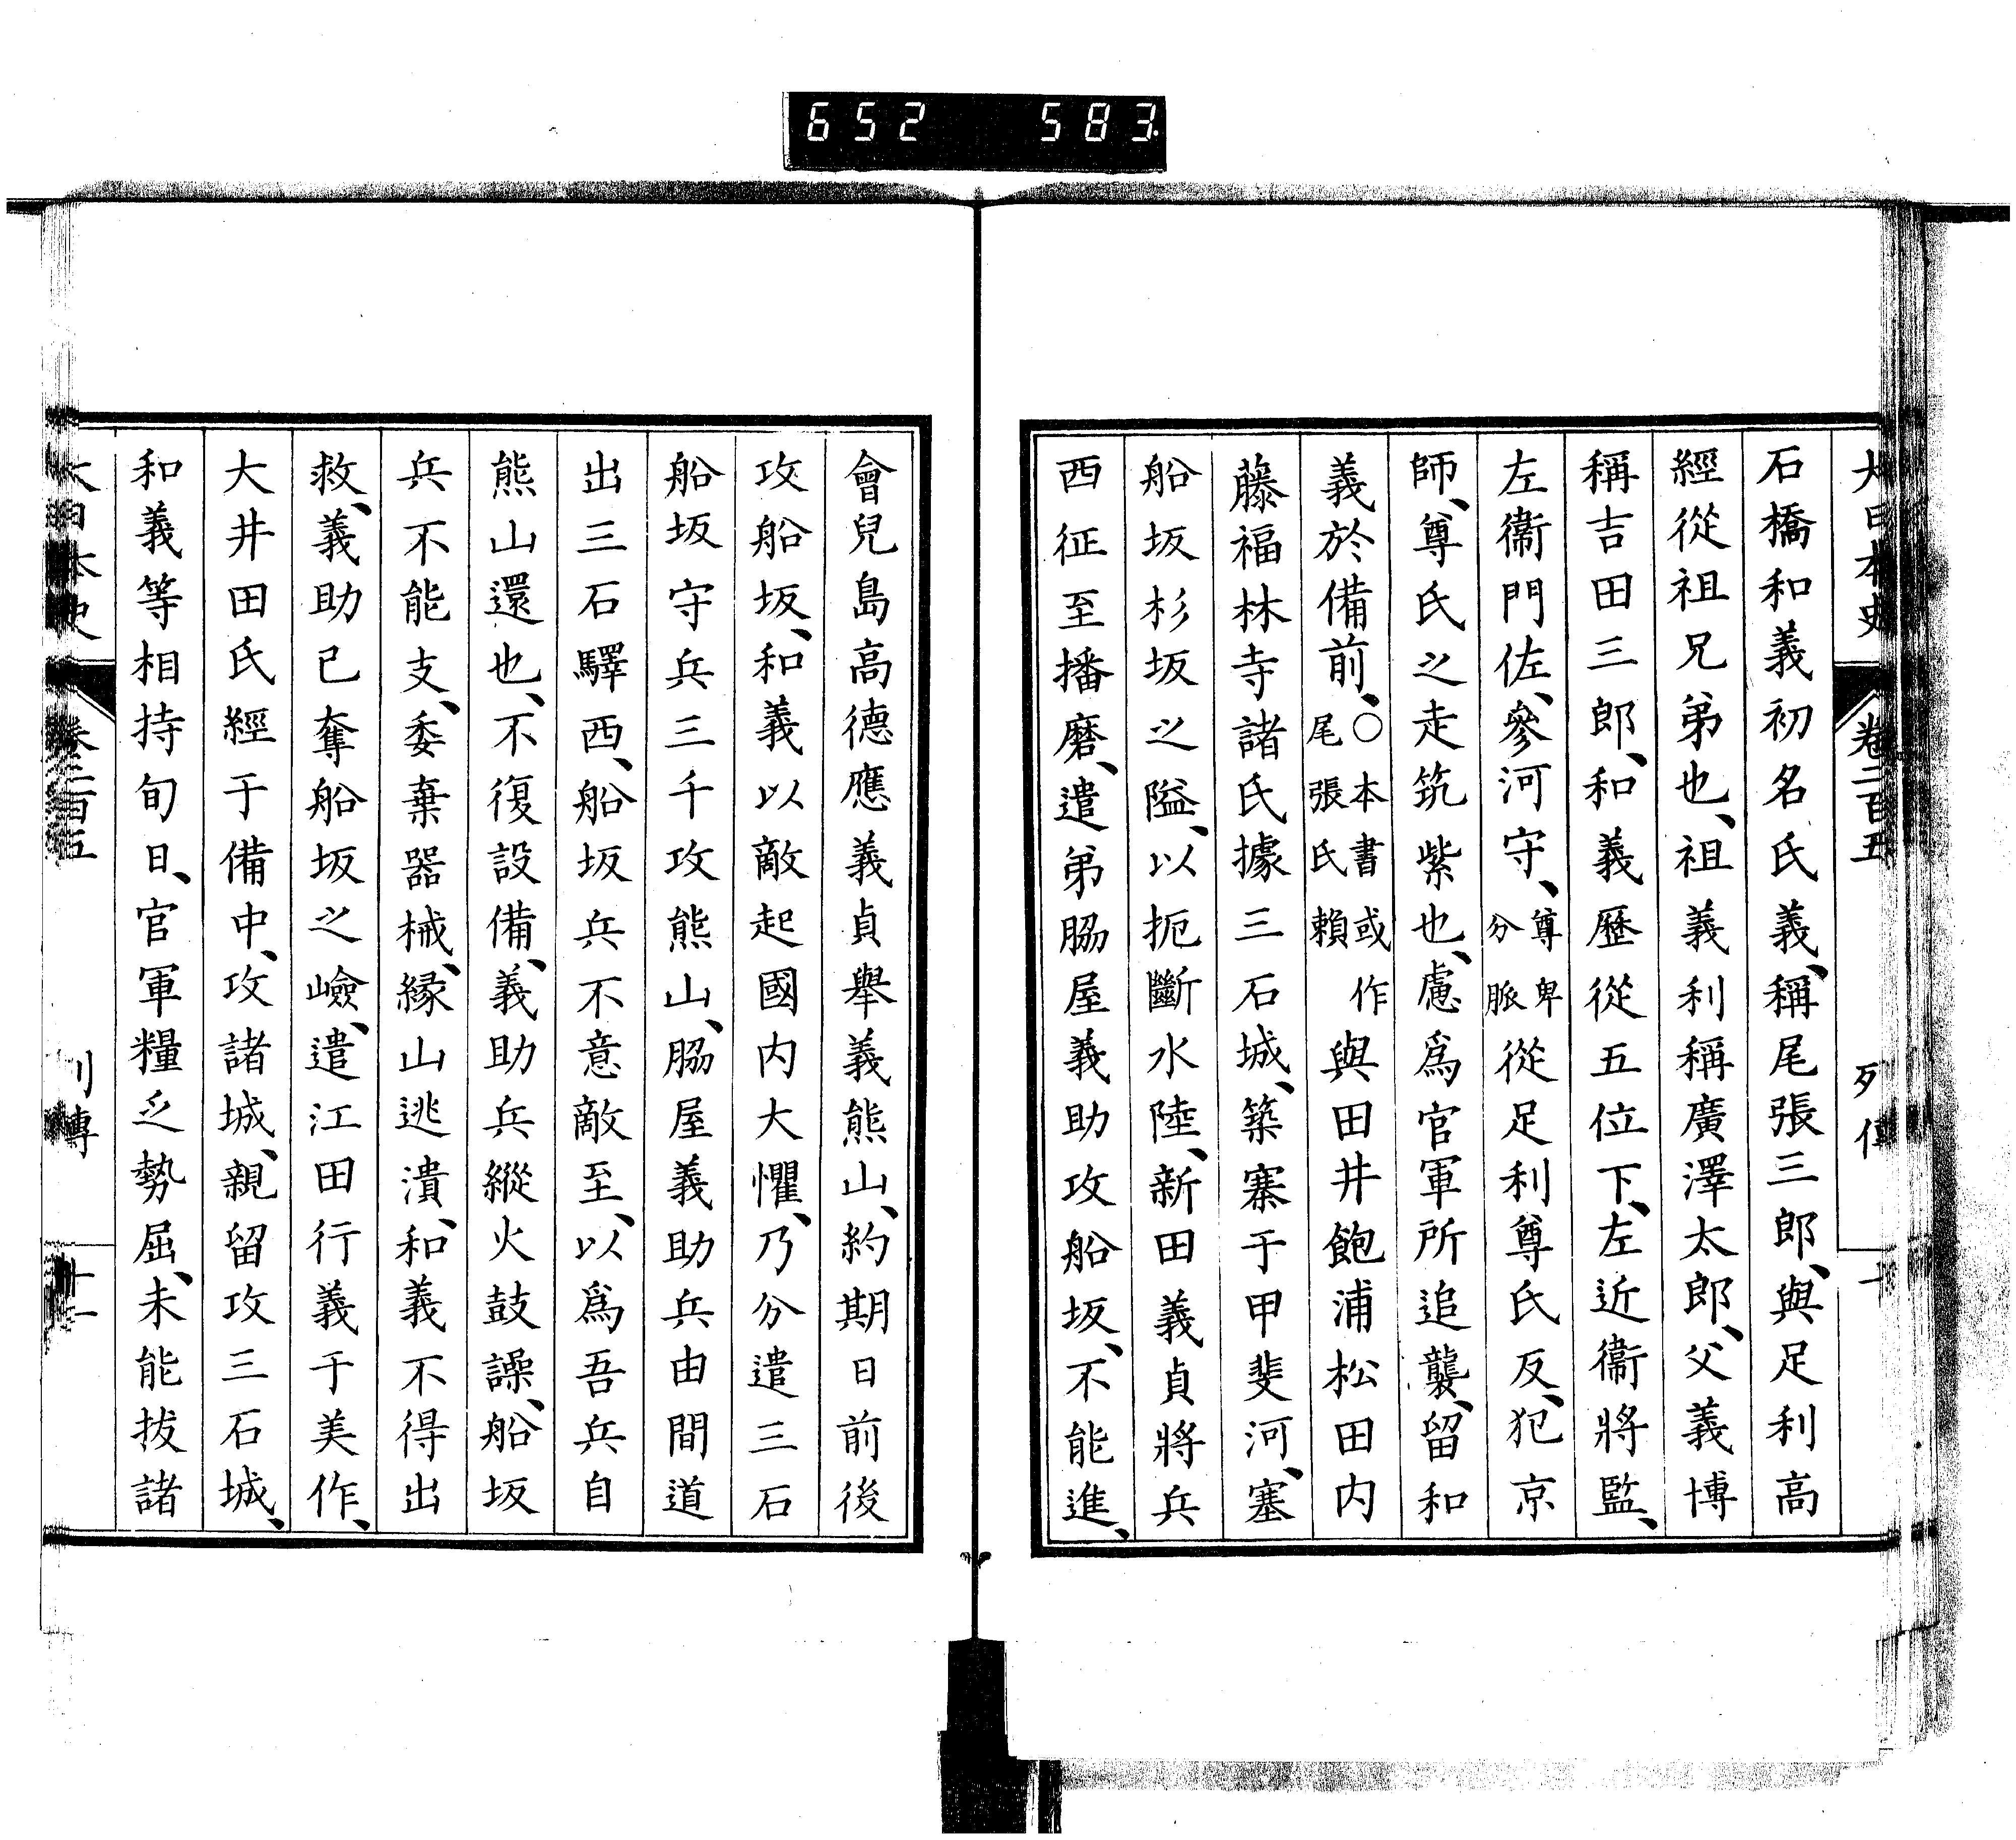 652 583
大日本史 卷二百五 列傳
石橋和義初名氏義、稱尾張三郎、與足利高
經從祖兄弟也、祖義利稱廣澤太郎、父義博
稱吉田三郎、和義歷從五位下、左近衞將監、
左衞門佐、參河守、尊卑分脈從足利尊氏反、犯京
師、尊氏之走筑紫也、慮爲官軍所追襲、留和
義於備前、○本書或作尾張氏賴與田井飽浦松田内
藤福林寺諸氏據三石城、築寨于甲斐河、塞
船坂杉坂之隘、以扼斷水陸、新田義貞將兵
西征至播磨、遣弟脇屋義助攻船坂、不能進、
會兒島高德應義貞舉義熊山、約期日前後
攻船坂、和義以敵起國内大懼、乃分遣三石
船坂守兵三千攻熊山、脇屋義助兵由間道
出三石驛西、船坂兵不意敵至、以爲吾兵自
熊山還也、不復設備、義助兵縱火鼓譟、船坂
兵不能支、委棄器械、緣山逃潰、和義不得出
救、義助已奪船坂之嶮、遣江田行義于美作、
大井田氏經于備中、攻諸城、親留攻三石城、
和義等相持旬日、官軍糧乏勢屈、未能拔諸
大日本史 卷二百五 列傳 十一